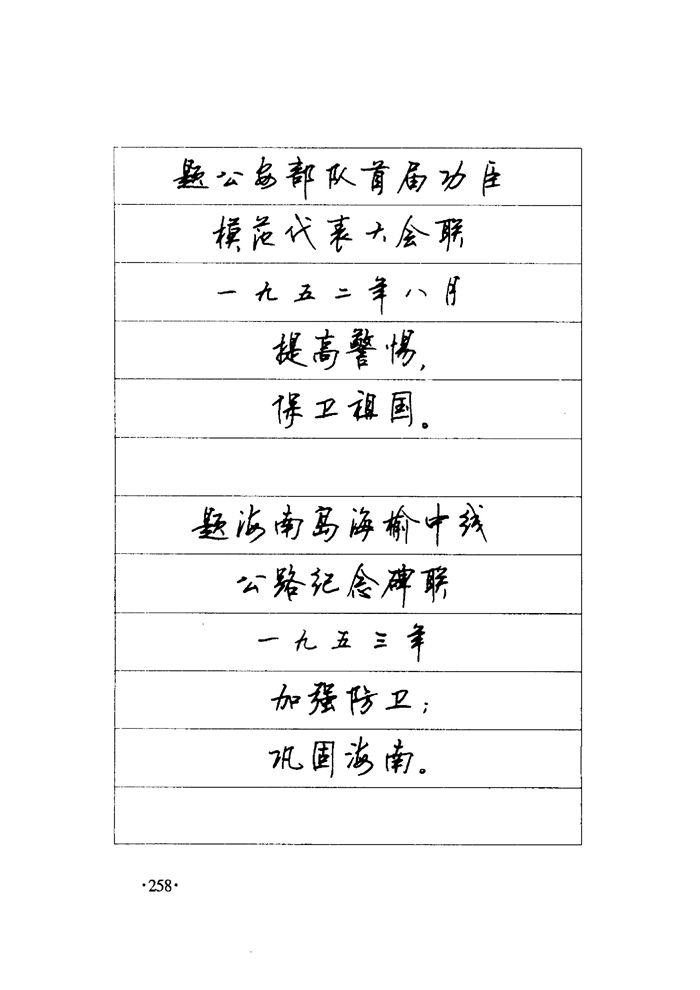 题公安部队首届功臣
模范代表大会联
一九五二年八月
提高警惕,
保卫祖国。
题海南岛海榆中线
公路纪念碑联
一九五三年
加强防卫;
巩固海南。
·258·